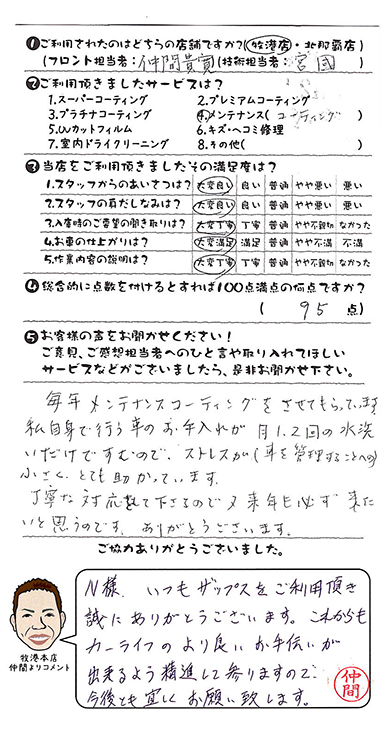 ❶ご利用されたのはどちらの店舗ですか?(牧港店・北那覇店)
(フロント担当者:仲間貴寛)(技術担当者:宮国)
❷ご利用頂きましたサービスは?
1.スーパーコーティング 2.プレミアムコーティング
3.プラチナコーティング 4.メンテナンス(コーティング)
5.UVカットフィルム 6.キズ・ヘコミ修理
7.室内ドライクリーニング 8.その他( )
❸当店をご利用頂きましたその満足度は?
1.スタッフからのあいさつは? 大変良い 良い 普通 やや悪い 悪い
2.スタッフの身だしなみは? 大変良い 良い 普通 やや悪い 悪い
3.入庫時のご要望の聞き取りは? 大変丁寧 丁寧 普通 やや不親切 なかった
4.お車の仕上がりは? 大変満足 満足 普通 やや不満 不満
5.作業内容の説明は? 大変丁寧 丁寧 普通 やや不親切 なかった
❹総合的に点数を付けるとすれば100点満点の何点ですか?
(95点)
❺お客様の声をお聞かせください!
ご意見、ご感想担当者へのひと言や取り入れてほしい
サービスなどがございましたら、是非お聞かせ下さい。
毎年メンテナンスコーティングをさせてもらっています
私自身で行う車のお手入れが月1.2回の水洗
いだけですむので、ストレスが(車を管理することへの)
小さく、とても助かっています。
丁寧な対応をして下さるので又来年も必ず来た
いと思うのです。ありがとうございます。
ご協力ありがとうございました。
N様、いつもザップスをご利用頂き
誠にありがとうございます。これからも
カーライフのより良いお手伝いが
出来るよう精進して参りますので、
今後とも宜しくお願い致します。
仲間
牧港本店
仲間よりコメント